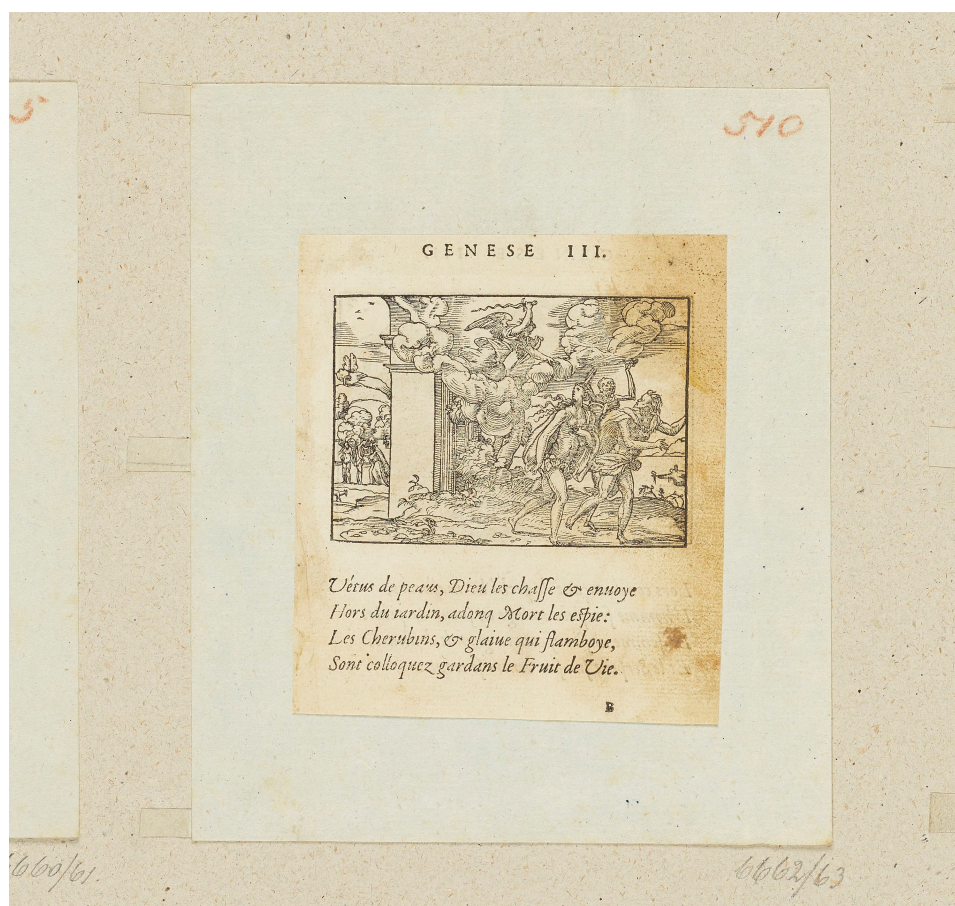 5
510
GENESE III.
Vétus de peaus, Dieu les chasse & enuoye
Hors du iardin, adonq Mort les espie:
Les Cherubins, & glaiue qui flamboye,
Sont colloquez gardans le Fruit de Vie.
B
6660/61.
6662/63